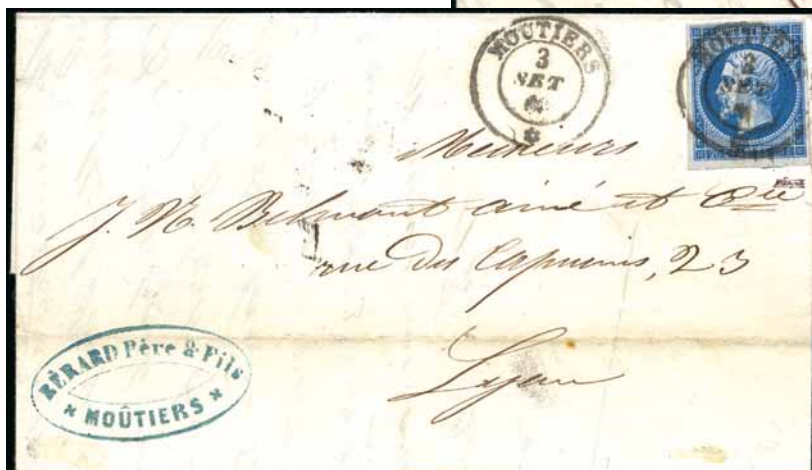 MOUTIERS
3
SET
MOUTIERS
3
SET
Messieurs
J. N. Belmont ainé et Cie
rue des Capucins, 23
Lyon
BÉRARD Père & Fils
MOÛTIERS